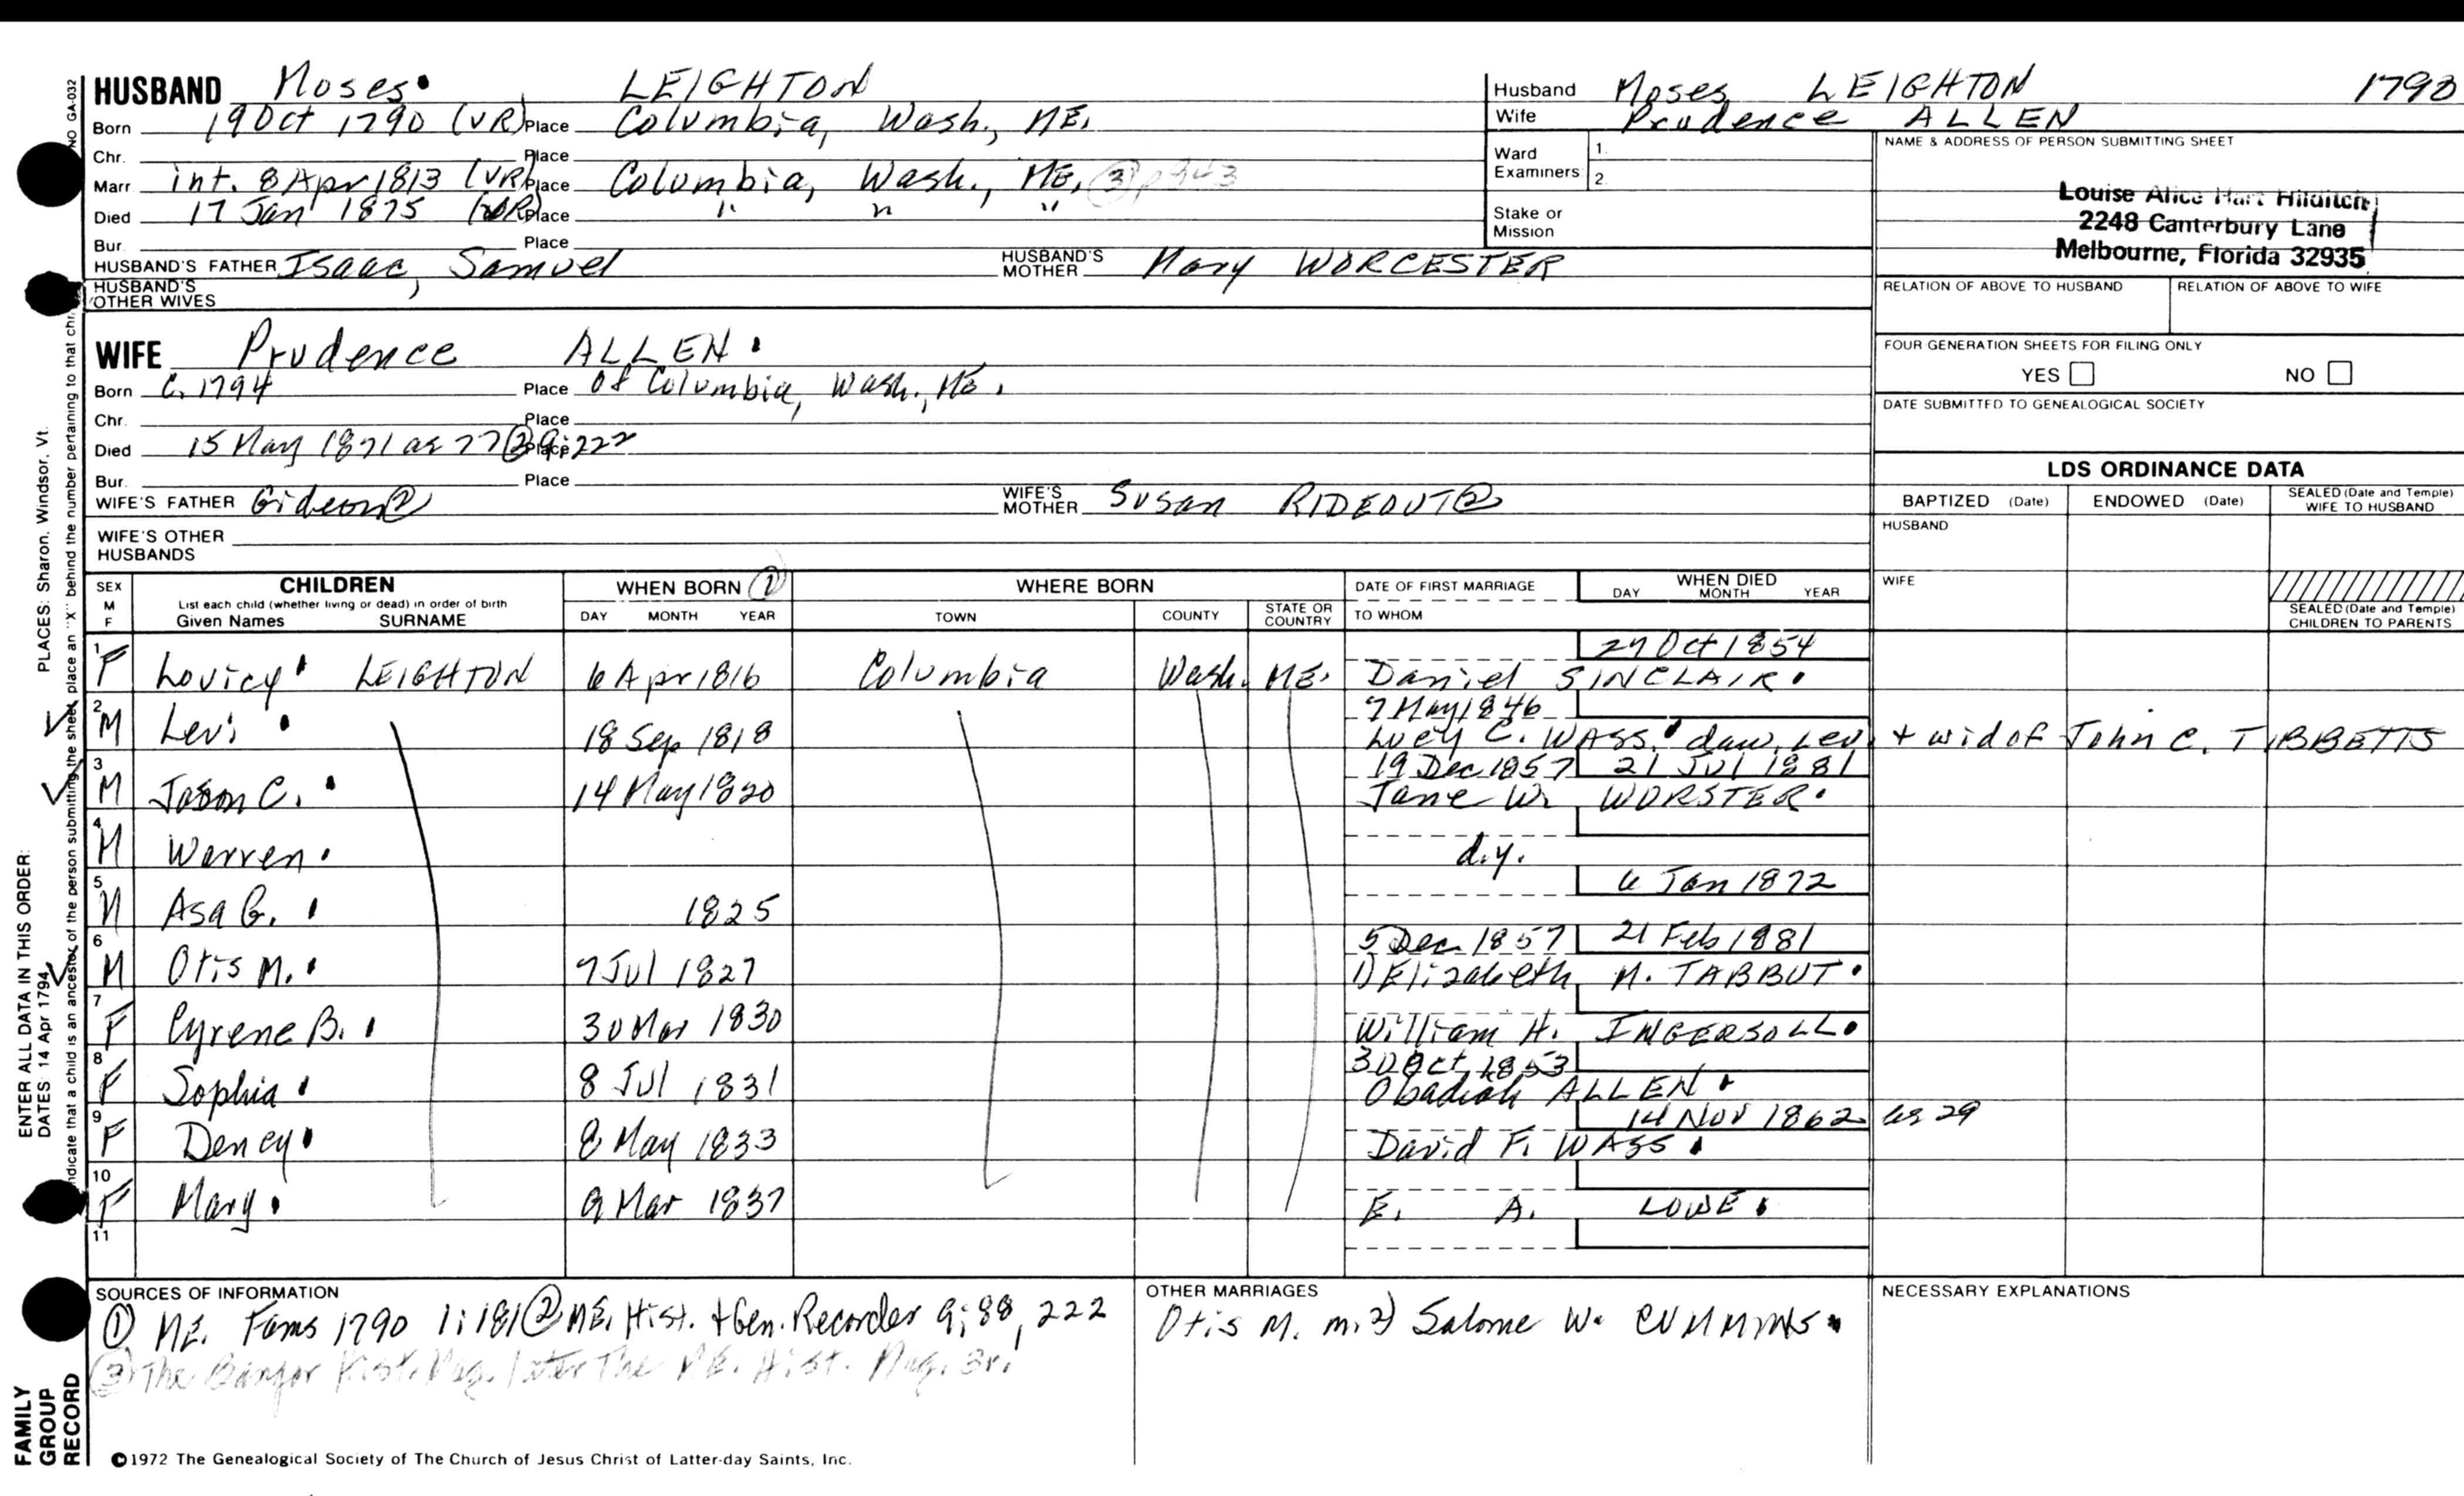 HUSBAND Moses LEIGHTON
Born 19 Oct 1790 (VR) Place Columbia, Wash., ME.
Chr. Place
Marr. int. 8 Apr 1813 (VR) Place Columbia, Wash., ME. (3) p 343
Died 17 Jan 1875 (VR) Place " " "
Bur. Place
HUSBAND'S FATHER Isaac, Samuel HUSBAND'S MOTHER Mary WORCESTER
HUSBAND'S OTHER WIVES
WIFE Prudence ALLEN
Born C. 1794 Place of Columbia, Wash., ME.
Chr. Place
Died 15 May 1871 ae 77 (2) 9:222 Place
Bur. Place
WIFE'S FATHER Gideon (2) WIFE'S MOTHER Susan RIDEOUT (2)
WIFE'S OTHER HUSBANDS
Husband Moses LEIGHTON 1790
Wife Prudence ALLEN
Ward Examiners 1. 2.
Stake or Mission
NAME & ADDRESS OF PERSON SUBMITTING SHEET
Louise Alice Hart Hilditch
2248 Canterbury Lane
Melbourne, Florida 32935
RELATION OF ABOVE TO HUSBAND RELATION OF ABOVE TO WIFE
FOUR GENERATION SHEETS FOR FILING ONLY
YES NO
DATE SUBMITTED TO GENEALOGICAL SOCIETY
LDS ORDINANCE DATA
BAPTIZED (Date) ENDOWED (Date) SEALED (Date and Temple) WIFE TO HUSBAND
HUSBAND
WIFE
SEALED (Date and Temple) CHILDREN TO PARENTS
SEX M F CHILDREN WHEN BORN (1) WHERE BORN DATE OF FIRST MARRIAGE WHEN DIED
List each child (whether living or dead) in order of birth
Given Names SURNAME DAY MONTH YEAR TOWN COUNTY STATE OR COUNTRY TO WHOM DAY MONTH YEAR
27 Oct 1854
1 F Lovicy LEIGHTON 6 Apr 1816 Columbia Wash. ME. Daniel SINCLAIR
7 May 1846
2 M Levi 18 Sep 1818 Lucy C. WASS, dau. Lev. + wid of John C. TIBBETTS
19 Dec 1857 21 Jul 1881
3 M Jason C. 14 May 1820 Jane W. WORSTER
4 M Warren d.y.
6 Jan 1872
5 M Asa G. 1825
5 Dec 1857 21 Feb 1881
6 M Otis M. 7 Jul 1827 1) Elizabeth M. TABBUT
7 F Cyrene B. 30 Mar 1830 William H. INGERSOLL
30 Oct 1853
8 F Sophia 8 Jul 1831 Obadiah ALLEN
14 Nov 1862 ae 29
9 F Dency 8 May 1833 David F. WASS
10 F Mary 9 Mar 1837 E. A. LOWE
11
SOURCES OF INFORMATION
(1) ME. Fams 1790 1:181 (2) ME. Hist. + Gen. Recorder 9:88, 222
(3) The Bangor Hist. Mag. later The ME. Hist. Mag.
OTHER MARRIAGES
Otis M. m. 2) Salome W. CUMMINGS
NECESSARY EXPLANATIONS
©1972 The Genealogical Society of The Church of Jesus Christ of Latter-day Saints, Inc.
FAMILY GROUP RECORD
ENTER ALL DATA IN THIS ORDER:
DATES 14 Apr 1794
PLACES: Sharon, Windsor, Vt.
indicate that a child is an ancestor of the person submitting the sheet, place an "X" behind the number pertaining to that chi
NO GA-032